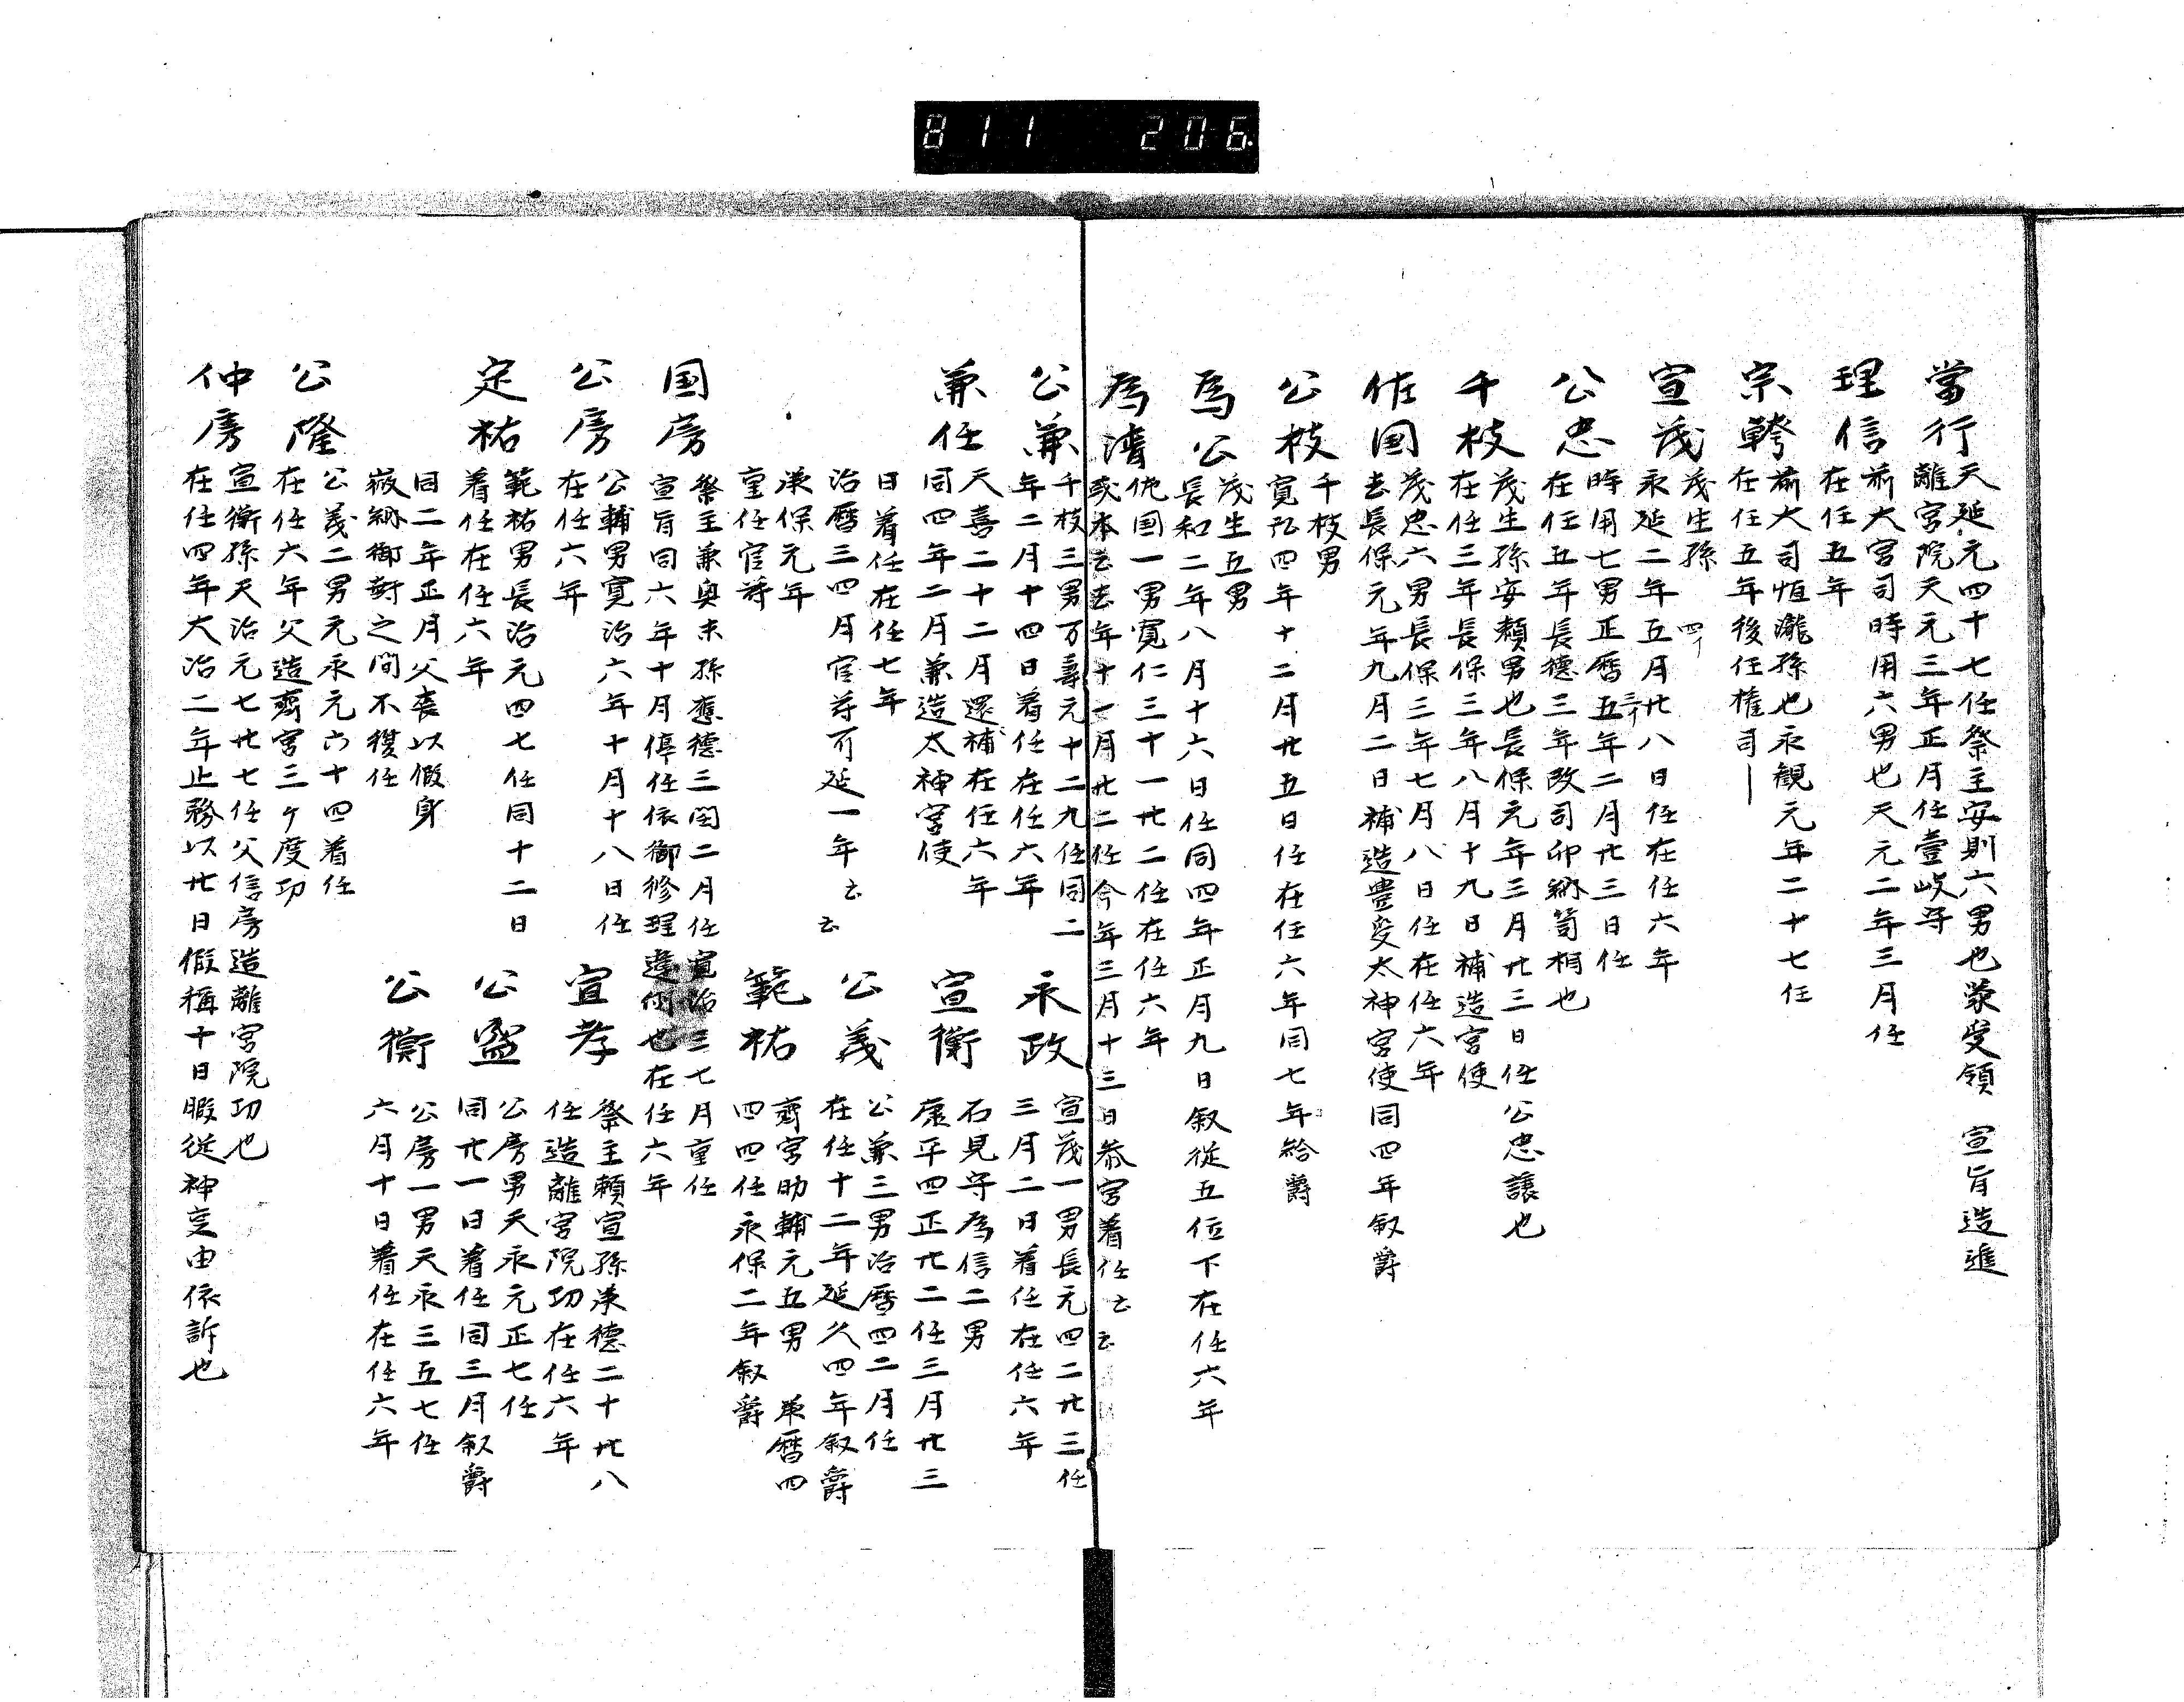 811 206
當行
天延元四十七任祭主安則六男也蒙受領 宣旨造進
離宮院天元三年正月任壹岐守
理信
前大宮司時用六男也天元二年三月任
在任五年
宗幹
前大司恒瀧孫也永観元年二十七任
在任五年後任権司
宣茂
茂生孫
永延二年五月廿八日任在任六年
公忠
時用七男正暦五年二月廿三日任
在任五年長徳三年改司印納笥桐也
千枝
茂生孫安頼男也長保元年三月廿三日任 公忠譲也
在任三年長保三年八月十九日補造宮使
佐国
茂忠六男長保三年七月八日任在任六年
去長保元年九月二日補造豊受太神宮使同四年叙爵
公枝
千枝男
寛弘四年十二月廿五日任在任六年同七年給爵
為公
茂生五男
長和二年八月十六日任同四年正月九日叙従五位下在任六年
為清
佐国一男寛仁三十一廿二任在任六年
或本云去年十一月廿二任今年三月十三日参宮着任云云
公兼
千枝三男万壽元十二九任同二
年二月十四日着任在任六年
永政
宣茂一男長元四二廿三任
三月二日着任在任六年
兼任
天喜二十二月還補在任六年
同四年二月兼造太神宮使
宣衡
石見守為信二男
康平四正廿二任三月廿三
日着任在任七年
公義
公兼三男治暦四二月任
在任十二年延久四年叙爵
治暦三四月官符可延一年云云
承保元年
重任官符
範祐
齊宮助輔元五男 承暦四
四四任永保二年叙爵
国房
祭主兼奥末孫應徳三閏二月任 寛治三七月重任
宣旨同六年十月停任依御修理違例也在任六年
公房
公輔男寛治六年十月十八日任
在任六年
宣孝
祭主頼宣孫承徳二十廿八
任造離宮院功在任六年
定祐
範祐男長治元四七任同十二日
着任在任六年
公盛
公房男天永元正七任
同廿一日着任同三月叙爵
同二年正月父喪以假身
嚴納御封之間不復任
公衡
公房一男天永三五七任
六月十日着任在任六年
公隆
公義二男元永元六十四着任
在任六年父造齊宮三ケ度功
仲房
宣衡孫天治元七廿七任父信房造離宮院功也
在任四年大治二年止務以廿日假稱十日暇從神吏由依訴也